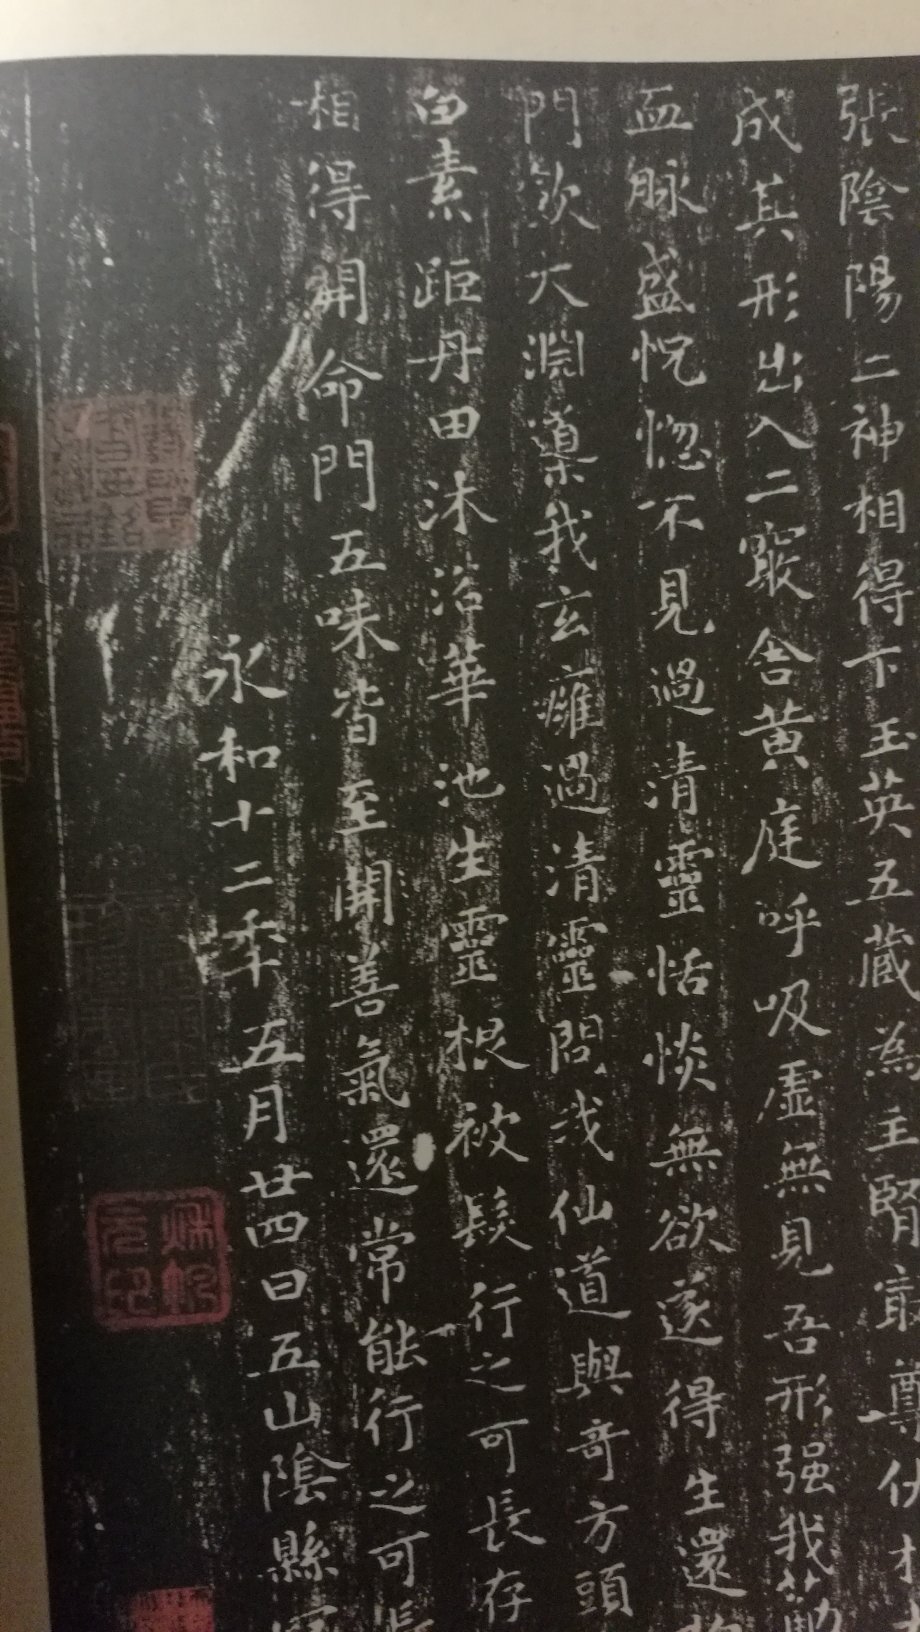 張陰陽二神相得下玉英五藏為主腎最尊伏
成其形出入二竅舍黄庭呼吸虛無見吾形强我筋
血脉盛怳惚不見過清靈恬惔無欲遂得生還
門飲大淵導我玄癰過清靈問我仙道與奇方頭
白素距丹田沐浴華池生靈根被髮行之可長存
相得開命門五味皆至開善氣還常能行之可長
永和十二年五月廿四日五山陰縣寫